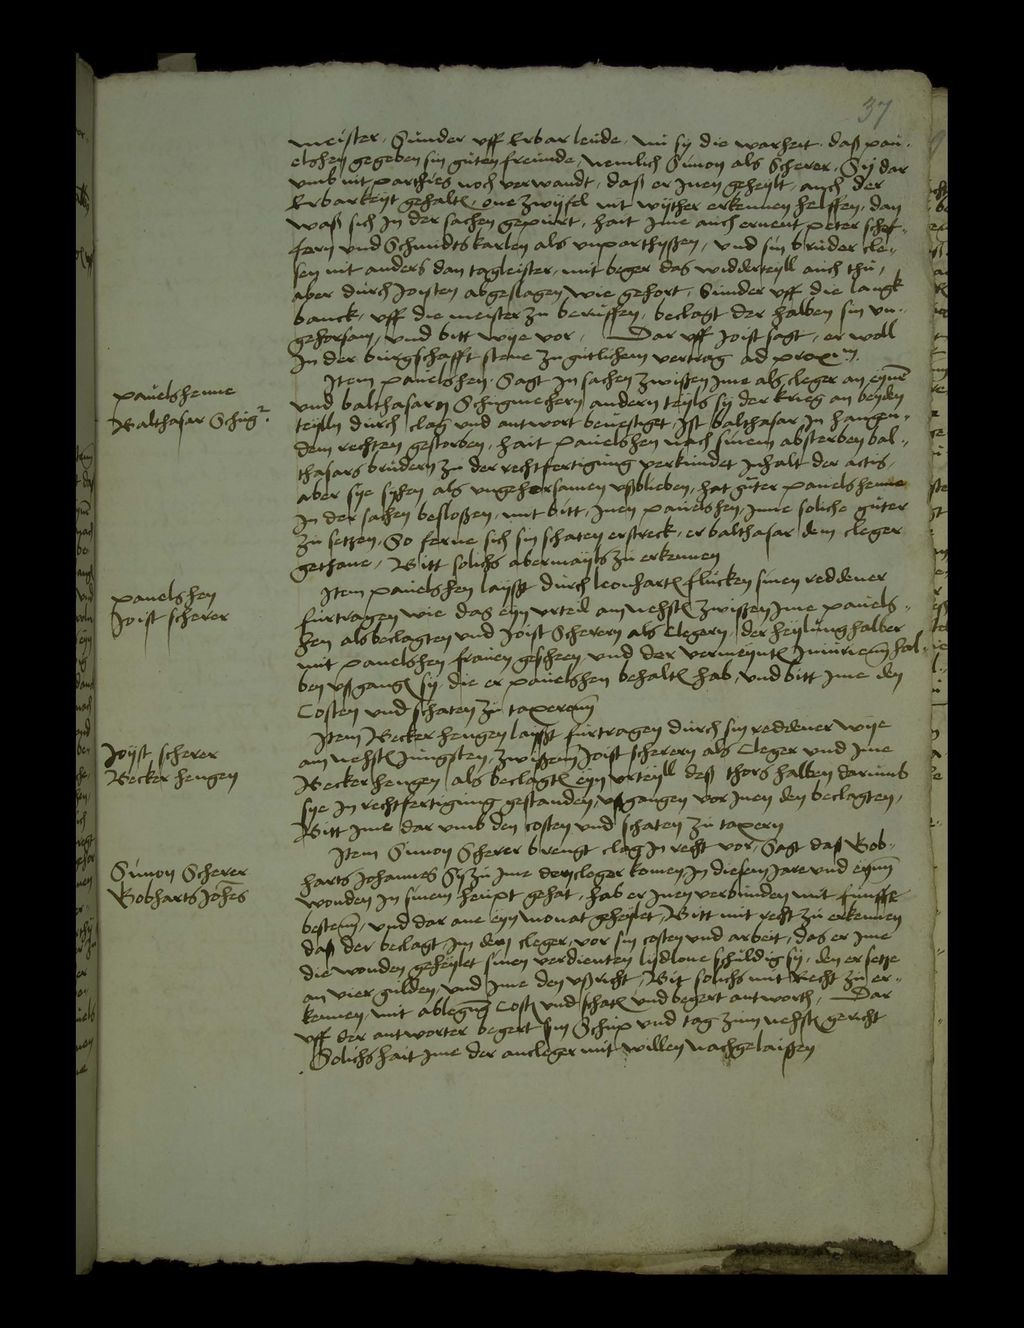 37
meister. Sunder uff Erbar leude. nu sy die warheit. daß pau-
elshen gegeben sin guten freunde, nemlich Simon als Scherer, Sy dar
umb nit parthies noch verwandt, daß er Inen geheylt, auch der
Erbarkeyt gehalten, one zwyfel nit wyther erkennen helffen, dan
waß sich In der sachen gepurt, hait Ime auch ernent peter schef-
fern und Schmidts karlen als unparthyschen, und sin bruder cle-
sen nit anders dan tagleister, mit beger das widderteyll auch thu,
aber durch Joisten abgeslagen, wie gehort, Sunder uff die langk
banck, uff die meister zu beruffen, beclagt der halben sin un-
gehorsam, und bitt wye vor, Dar uff Joist sagt, er woll
In der burgschafft stene zu gutlichem vertrag ad prox
pauelshenne
Balthasar Schig
Item pauelshen. Sagt In sachen zwissen Ime als cleger an eynem
und balthasarn Schigmechern andern teyls sy der krieg an beyden
teylln durch clag und antwort bevestiget, Ist balthasar In hangen-
dem rechten gestorben, hait pauelshen nach sinem absterben bal-
thasars brudern zu der rechtfertigung verkundet Inhalt der actis,
aber sye syhen als ungehorsamen ußblieben, hat guter pauelshenne
In der sachen besloßen, mit bitt, Inen pauelshen, Inne soliche guter
zu setzen, So ferne sich sin schaten erstreck, er balthasar dem cleger
gethane, Bitt solichs abermayls zu erkennen
pauelshen
Joist scherer
Item pauelshen laysst durch leonharten flucken sinen reddener
furtragen wie das eyn urteil am nehsten zwissen Ime pauels-
hen als beclagten und Joist Scherern als Clegern, der heylung halber
mit pauelshen frauen gescheen, und der vermeynten hal-
ben ußgangen sy, die er pauelshen behalten hab, und bitt Ime den
Costen und schaten zu taxeren
Joyst scherer
Becker hengen
Item Becker hengen laysst furtragen durch sin reddener wye
am nehsten Jungsten, zwissem Joist scherern als Cleger und Ime
Becker hengen als beclagten eyn urteyll deß thors halben darumb
sye In rechtfertigung gestanden, ußgangen vor Inen den beclagten,
Bitt Ime dar umb den costen und schaten zu taxern
Simon Scherer
Bobharts Johes
Item Simon Scherer brengt clag In recht vor, Sagt daß Bob-
harts Johannes Sy zu Ime dem cleger komen In diesem Jare und eynen
wonden In sinem heupt gehat, hab er Inen verbunden mit sin
besten, und dar ane eyn monat geheylet, Bitt mit recht zu erkennen
daß der beclagt, Im dem cleger, vor sin costen und arbeit, das er Ime
die wonden geheylet sinen verdienten lydlone schuldig sy, den er setze
an vier gulden, und Ime den ußricht, Bit solichs mit Recht zu er-
kennen, mit ablegung Costen und schaten und begert antworth, Dar
uff der antworter begert sin Schup und tag zum nehsten gericht
Solichs hait Ime der ancleger mit willen nachgelaissen